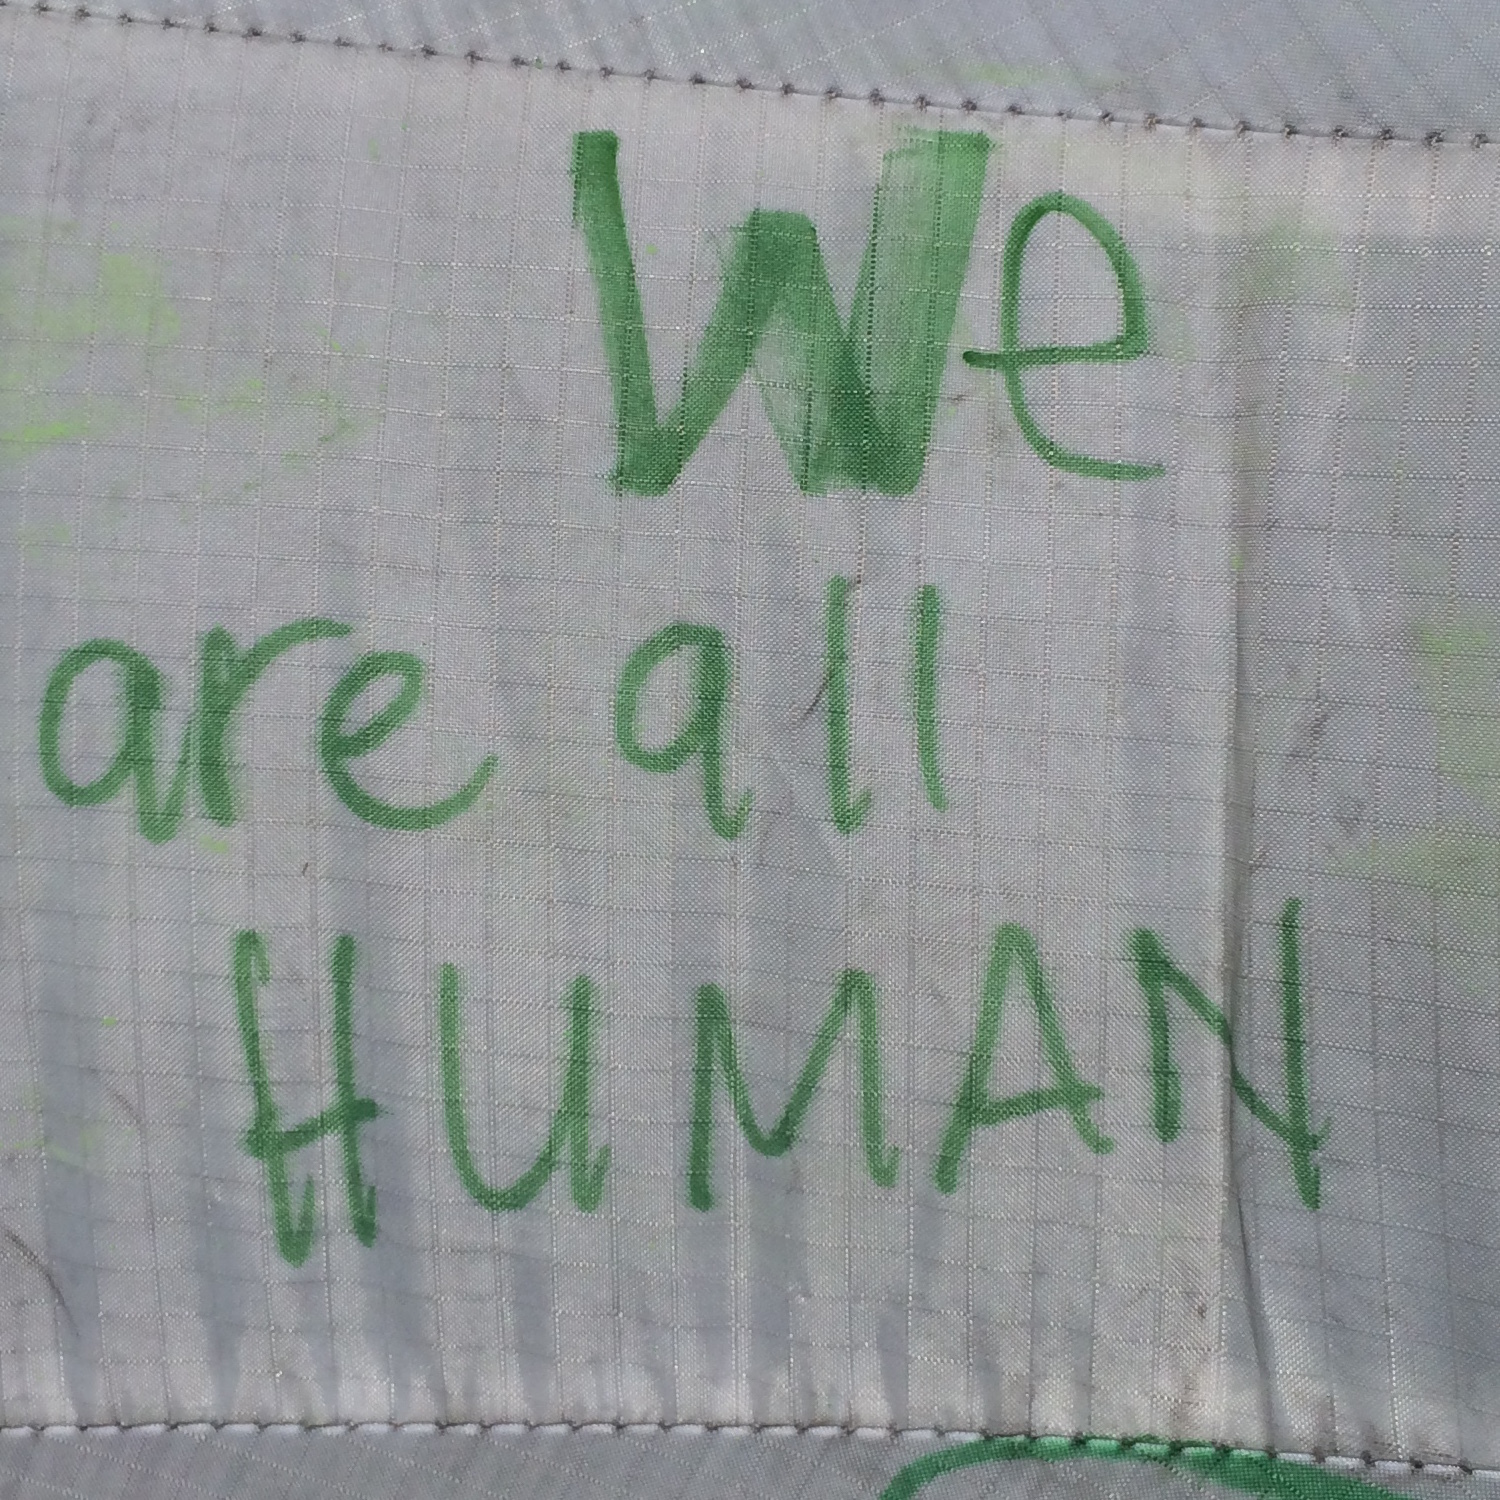 We
are all
HUMAN